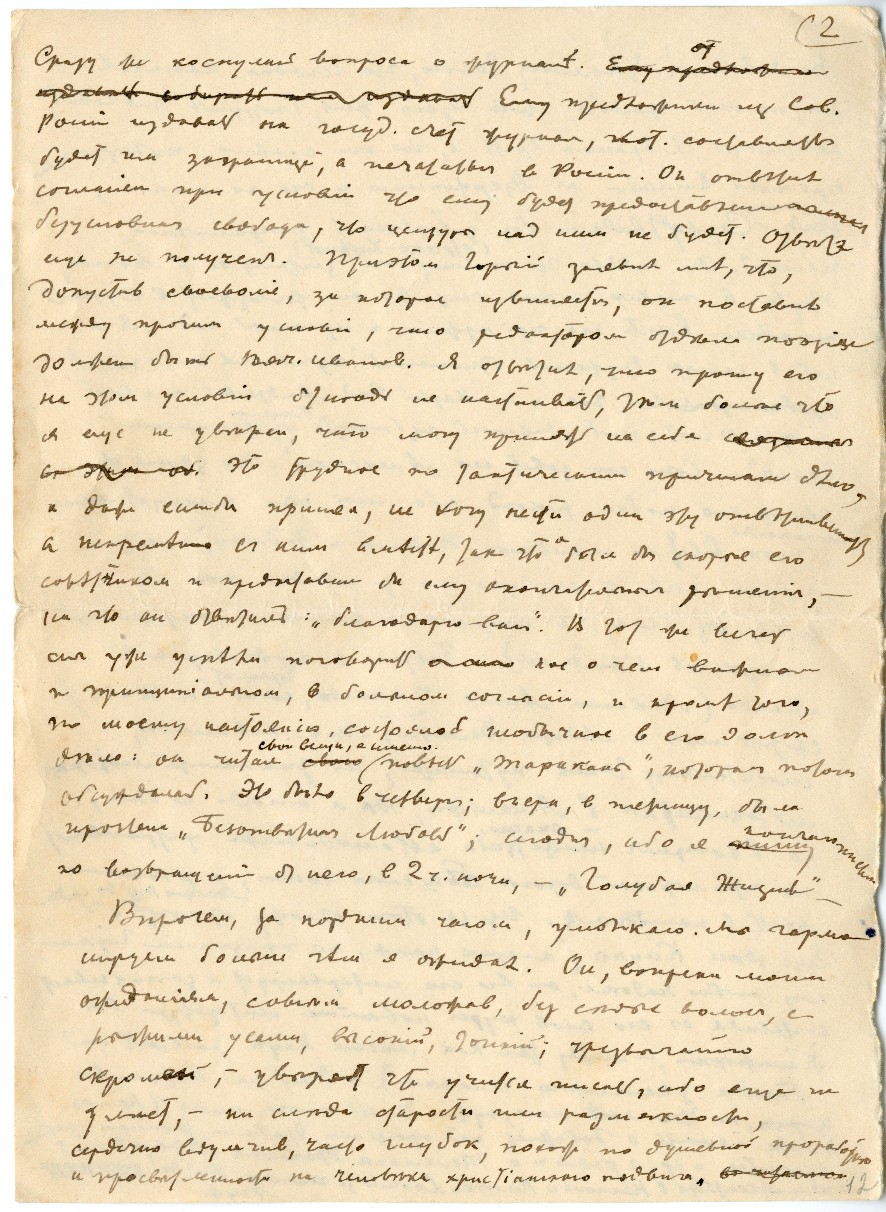 (2
Сразу же коснулись вопроса о журналѣ.
Ему предложили из Сов.
Россіи издавать на госуд. счет журнал, кот. составляться
будет им заграницей, а печататься в Россіи. Он отвѣтил
согласіем при условіи что ему будет предоставлена
безусловная свобода, что цензуры над ним не будет. Отвѣта
еще не получено. При этом Горькій заявил мнѣ, что,
допустив своеволіе, за которое извиняется, он поставил
между прочим условіем, что редактором отдѣла поэзіи
должен быть Вяч. Иванов. Я отвѣтил, что прошу его
на этом условіи отнюдь не настаивать, тѣм болѣе что
я еще не увѣрен, что могу принять на себя
это трудное по тактическим причинам дѣло,
и даже если бы принял, не хочу нести один эту отвѣтственность
а непремѣнно с ним вмѣстѣ, так что я был бы скорѣе его
совѣтником и предоставил бы ему окончательныя рѣшенія, —
на что он отвѣтил: „благодарю вас". В тот же вечер
мы уже успѣли поговорить кое о чем важном
и принципіальном, в большом согласіи, и кромѣ того,
по моему настоянію, состоялось необычное в его домѣ
дѣло: он читал свои вещи, а именно (повѣсть „Тараканы", которая потом
обсуждалась. Это было в четверг; вчера, в пятницу, была
прочтена „Безотвѣтная Любовь"; сегодня, ибо я кончаю письмо
по возвращеніи от него, в 2 ч. ночи, — „Голубая Жизнь" —
Впрочем, за поздним часом, умолкаю. Мы гармо
нируем больше чѣм я ожидал. Он, вопреки моим
ожиданіям, совсѣм моложав, без сѣдых волос, с
рыжими усами, высокій, тонкій; чрезвычайно
скромен, — увѣряет что учится писать, ибо еще не
умѣет, — ни слѣда старости или размягклости,
сердечно вдумчив, часто глубок, похож по душевной проработанности
и просвѣтленности на человѣка христіанского подвига.
12